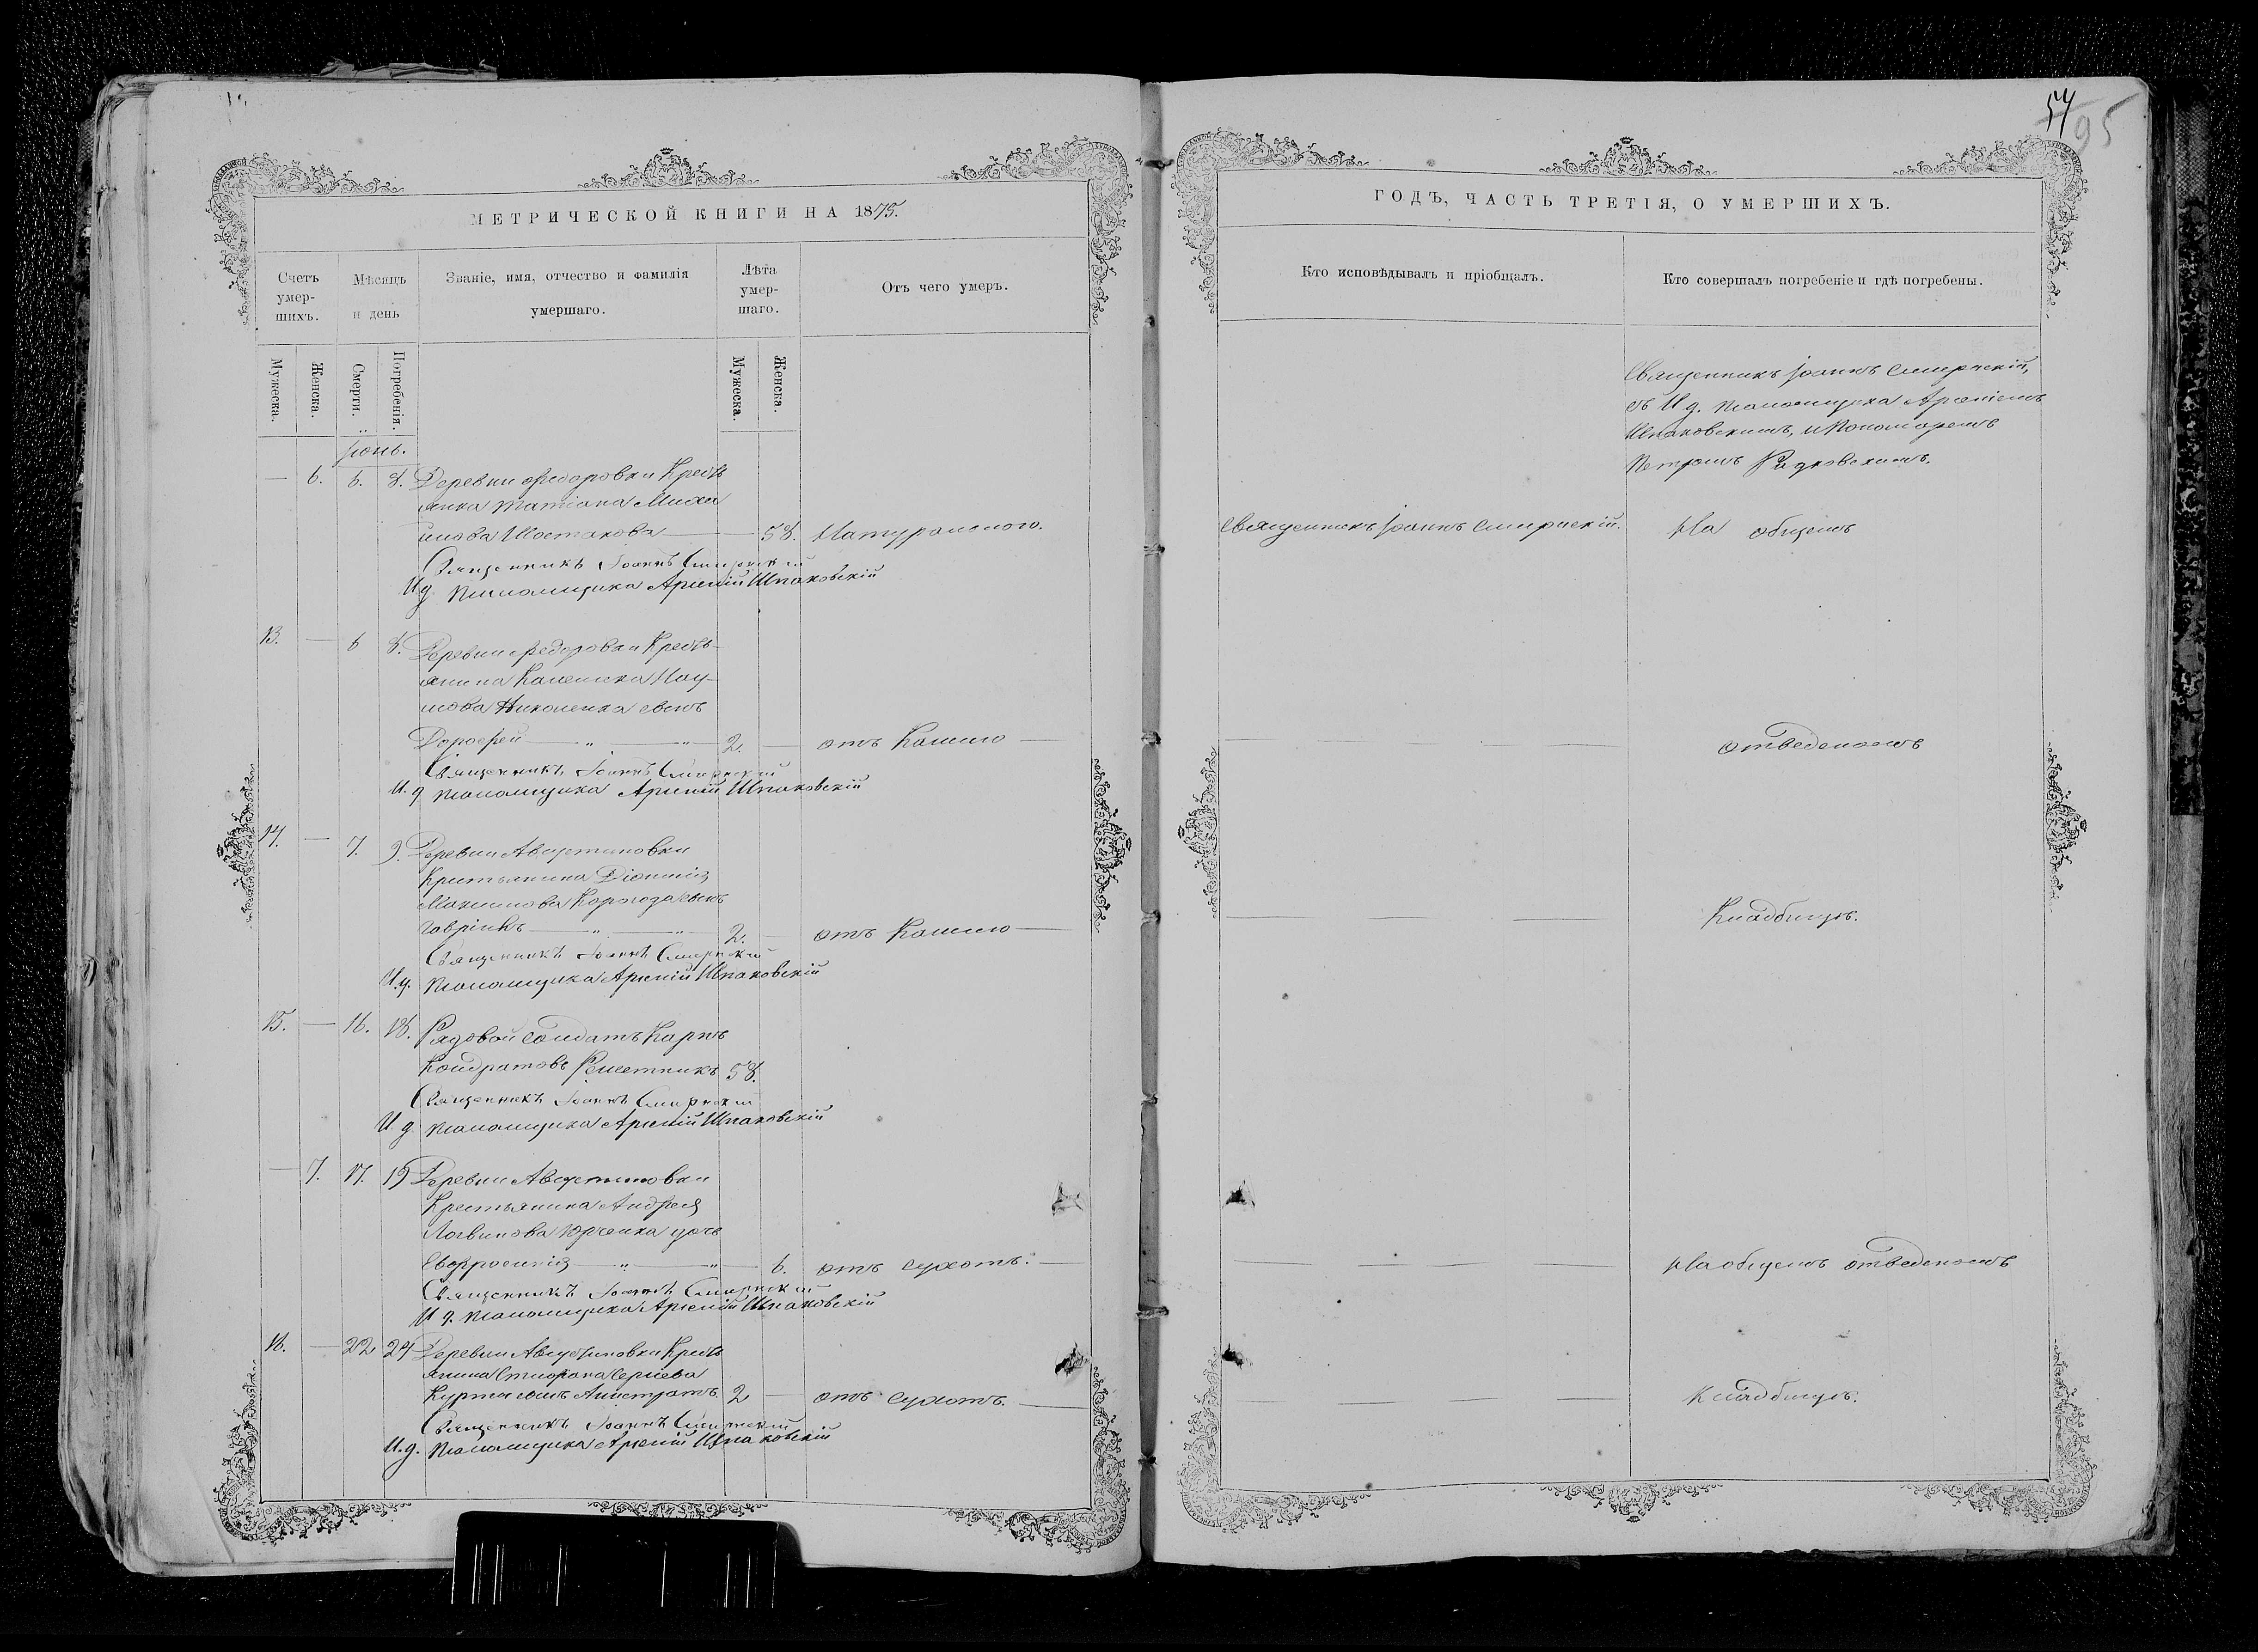 МЕТРИЧЕСКОЙ КНИГИ НА 1875.
Счетъ умер-шихъ.
Мѣсяцъ и день
Званіе, имя, отчество и фамилія умершаго.
Лѣта умер-шаго.
Отъ чего умеръ.
Мужеска.
Женска.
Смерти.
Погребенія.
Мужеска.
Женска.
Іюнь.
— 6. 6. 8. Деревни Федоровки Кресть
янка Татіана Миха
илова Шостакова — 58. Натуральною.
Священникъ Іоаннъ Смирнскій
И д Псаломщика Арсеній Шпаковскій
13. — 6 8. Деревни Федоровки Кресть-
янина Нау-
мова Николенка сынъ
Дорофей — „ — „ — 2. — отъ Кашлю —
Священникъ Іоаннъ Смирнскій
И. д Псаломщика Арсеній Шпаковскій
14. — 7. 9. Деревни Августиновки
Крестьянина Діонисія
Максимова сынъ
Гавріилъ — „ — „ — 2. — отъ Кашлю —
Священникъ Іоаннъ Смирнскій
И.д. Псаломщика Арсеній Шпаковскій
15. — 16. 18. Рядовой Солдатъ Карпъ
Кондратовъ Решетникъ 58.
Священникъ Іоаннъ Смирнскій
И. д. Псаломщика Арсеній Шпаковскій
— 7. 17. 19 Деревни Августиновки
Крестьянина Андрея
Логвинова Юрченка дочь
Евфросинія — „ — „ — 6. отъ сухотъ. —
Священникъ Іоаннъ Смирнскій
И д. Псаломщика Арсеній Шпаковскій
16. — 22 24 Деревни Августиновки Кресть
янина Сергіева
сынъ Калистратъ. 2 — отъ сухотъ. —
Священникъ Іоаннъ Смирнскій
И.д. Псаломщика Арсеній Шпаковскій
54
95
ГОДЪ, ЧАСТЬ ТРЕТІЯ, О УМЕРШИХЪ.
Кто исповѣдывалъ и пріобщалъ.
Кто совершалъ погребеніе и гдѣ погребены.
Священникъ Іоаннъ Смирнскій,
съ И д. Псаломщика Арсеніемъ
Шпаковскимъ, и Пономаремъ
Петромъ Радковскимъ.
Священникъ Іоаннъ Смирнскій. На общемъ
отведеномъ
Кладбищѣ.
На общемъ отведеномъ
Кладбищѣ.